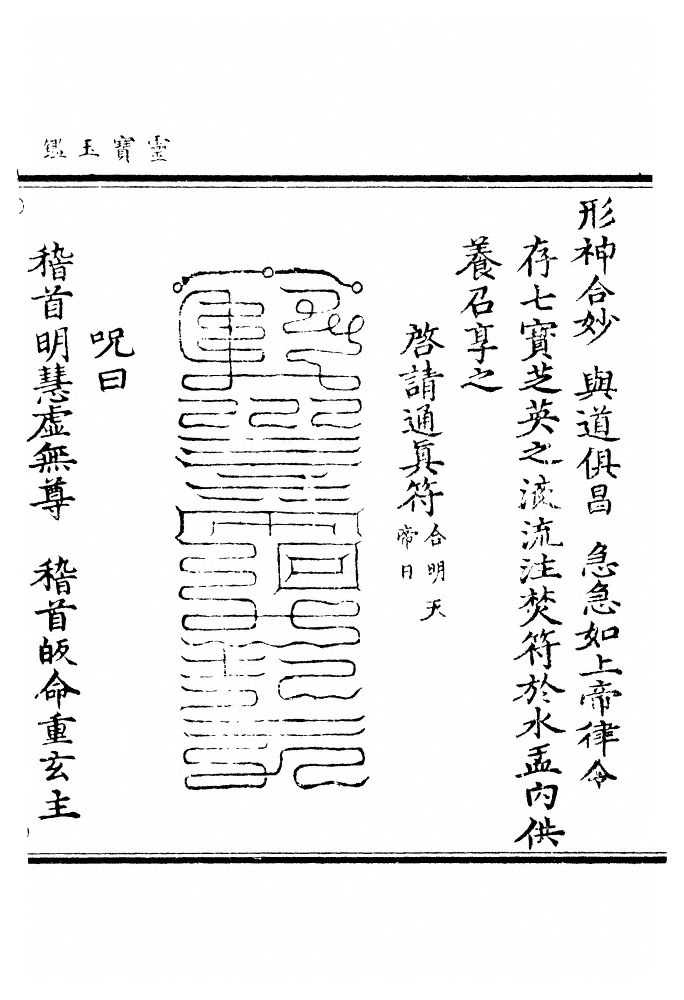 靈寶玉鑑
形神合妙　與道俱昌　急急如上帝律令
存七寶芝英之液流注焚符於水盂內供
養召享之
啓請通眞符
合明天
帝日
呪曰
稽首明慧虛無尊　稽首皈命重玄主